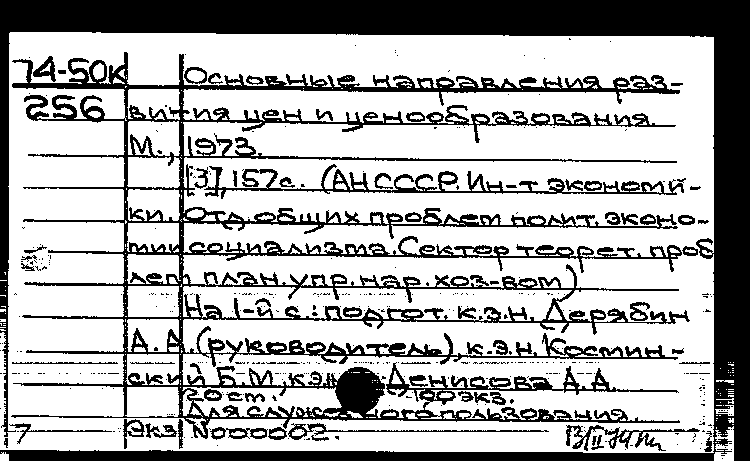 74-50к Основные направления раз-
256 вития цен и ценообразования.
М., 1973.
[3], 157с. (АН СССР. Ин-т экономи-
ки. Отд. общих проблем полит. эконо-
мии социализма. Сектор теорет. проб
лем план. упр. нар. хоз-вом)
На 1-й с.: подгот. к.э.н. Дерябин
А. А. (руководитель), к.э.н. Костин-
ский Б.М., к.э.н. Денисова А.А.
20 ст. 100 экз.
Для служебного пользования.
7 Экз N000002.